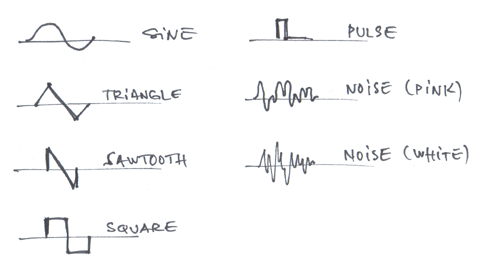 SINE
TRIANGLE
SAWTOOTH
SQUARE
PULSE
NOISE (PINK)
NOISE (WHITE)